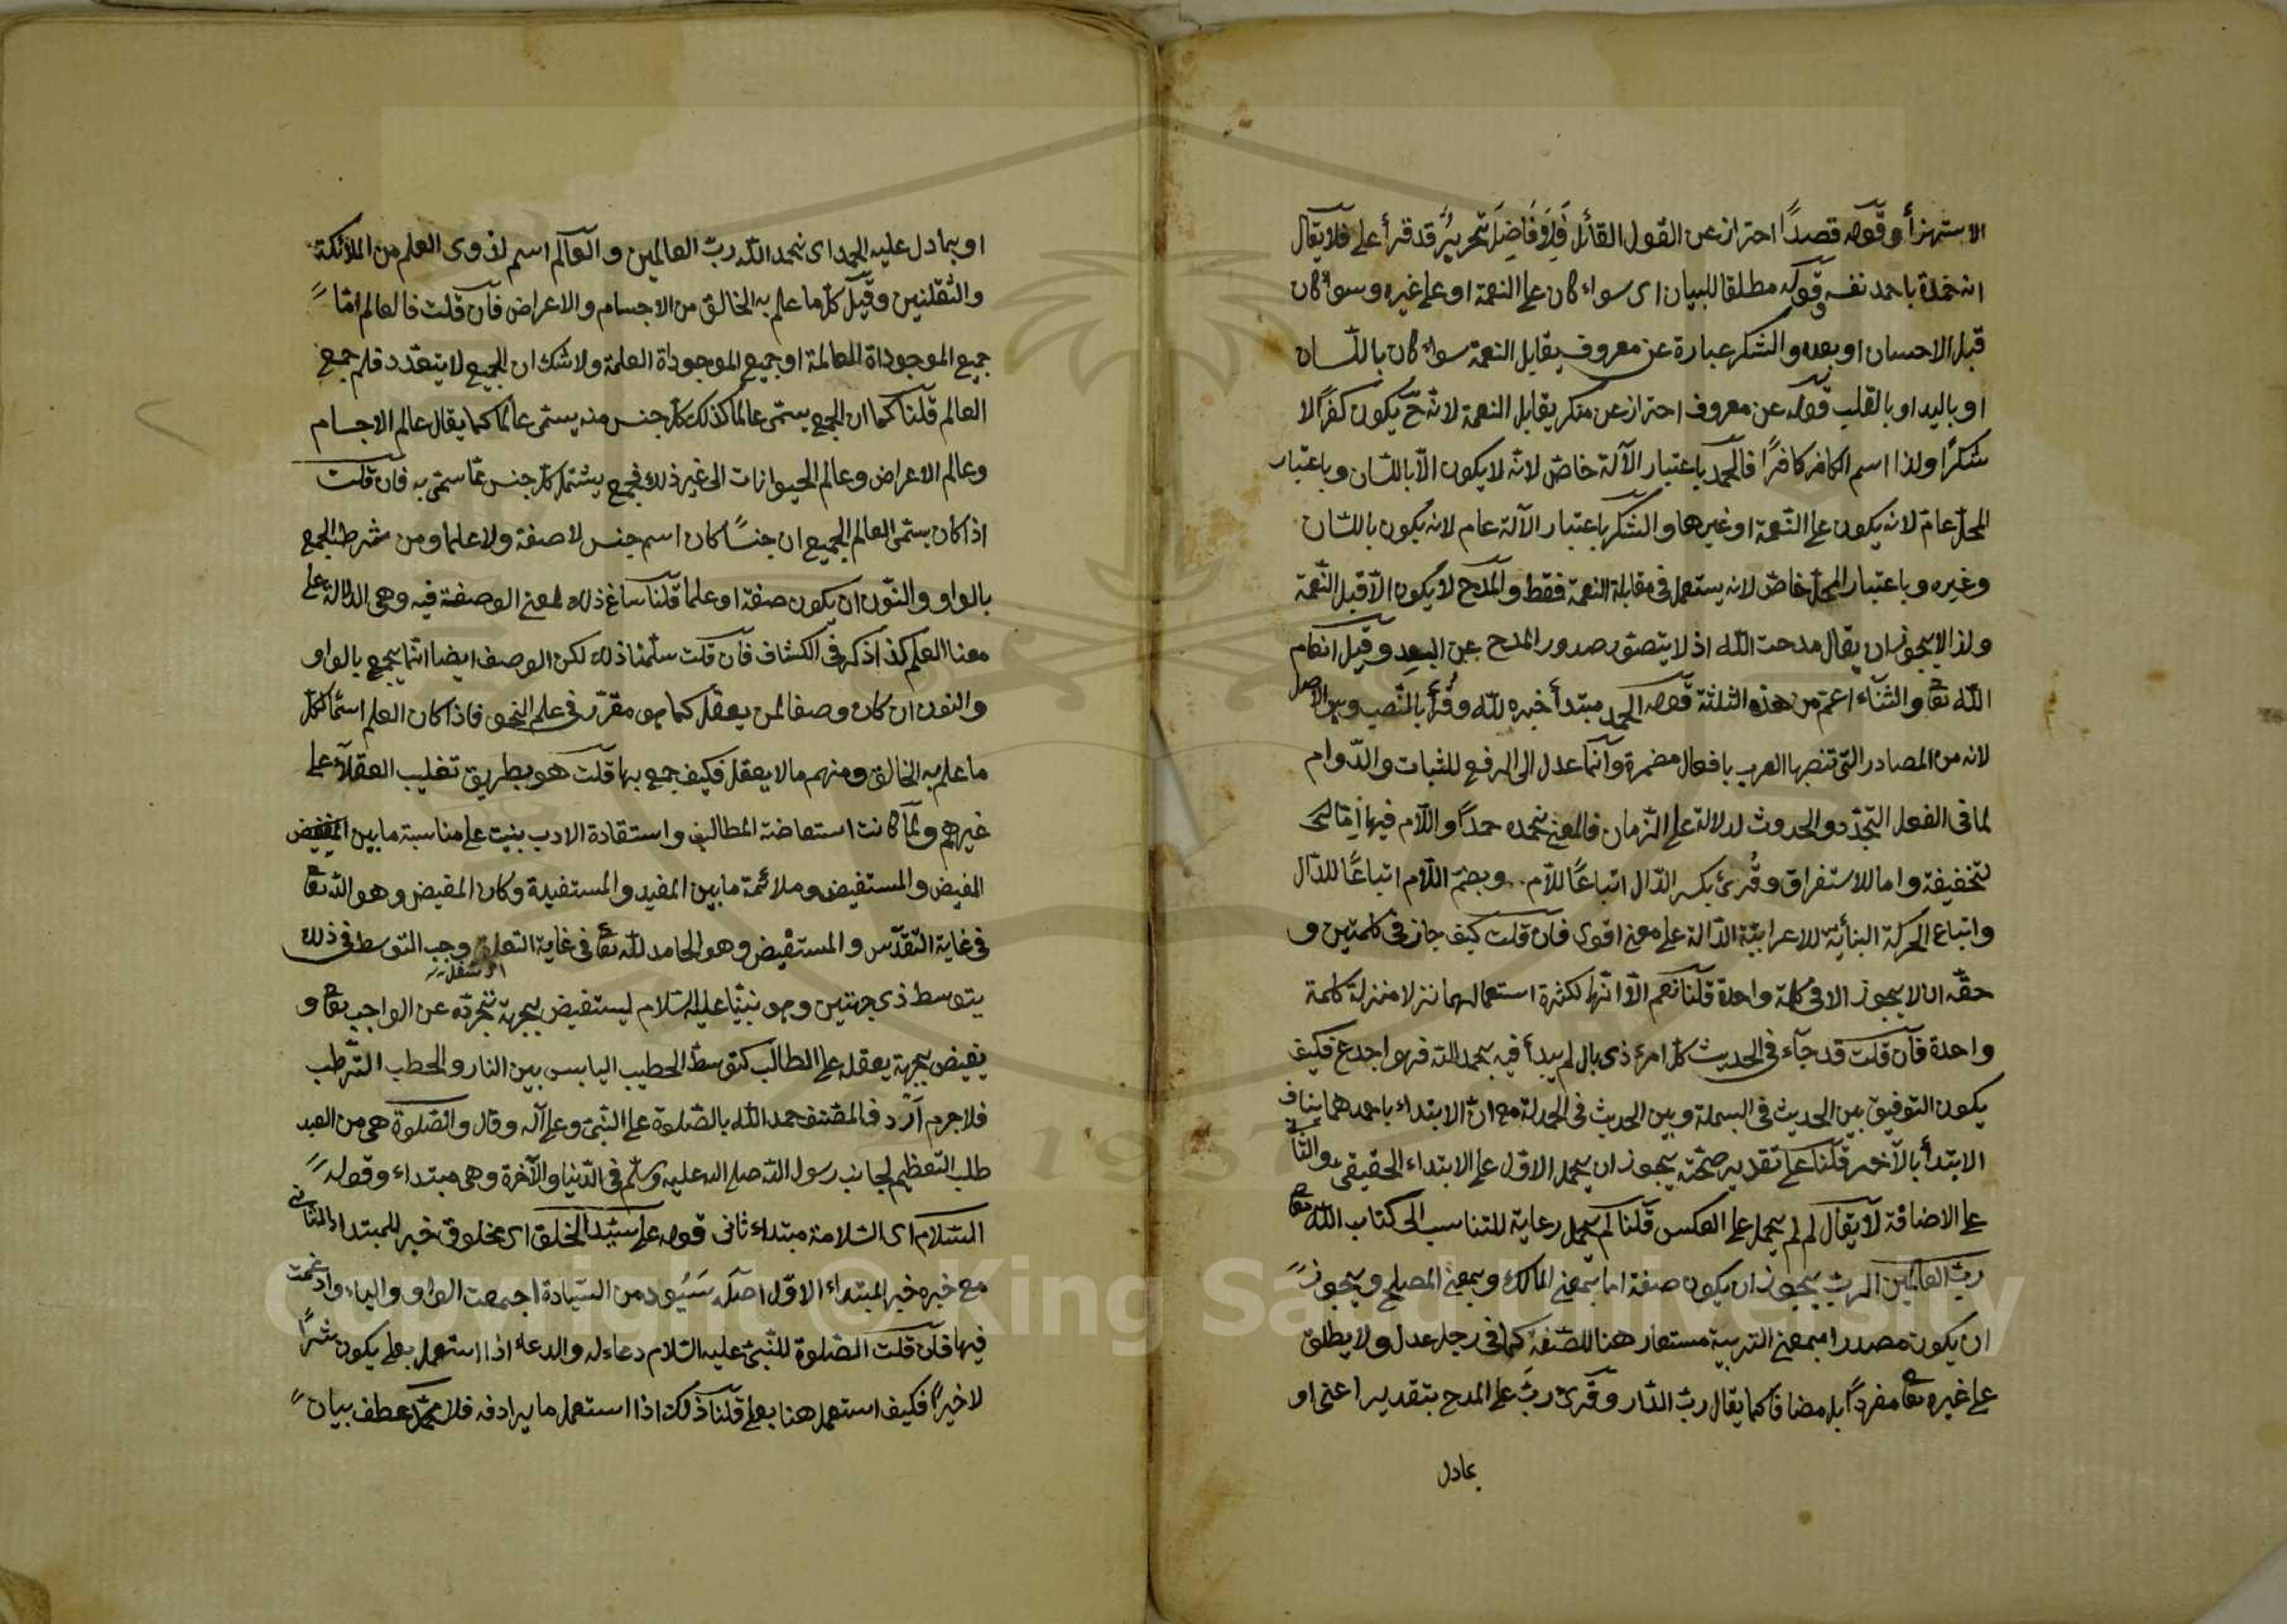 الاستهزأ وقوله قصدًا احتراز عن القول القائل تحرير قد قرأ على فلا يقال
انه حمدة باحمد نفسه وقوله مطلقا للبيان اى سواء كان على النعمة او على غيره وسواء كان
قبل الاحسان او بعده والشكر عبارة عن معروف يقابل النعمة سواء كان باللسان
او باليد او بالقلب قوله عن معروف احتراز عن منكر يقابل النعمة لانه ح يكون كفرًا لا
شكرًا ولذا اسم الكافر كافرًا فالحمد باعتبار الآلة خاص لانه لا يكون الا باللسان وباعتبار
المحل عام لانه يكون على النعمة او غيرها والشكر باعتبار الآلة عام لانه يكون باللسان
وغيره وباعتبار المحل خاص لانه يستعمل فى مقابلة النعمة فقط والمدح لا يكون الا قبل النعمة
ولذا لا يجوز ان يقال مدحت الله اذ لا يتصور صدور المدح عن العبد وقيل انعام
الله تعا والثناء اعم من هذه الثلثة قوله الحمد مبتدأ خبره لله وقرأ بالنصب وهى الاصل
لانه من المصادر التى تنصبها العرب بافعال مضمرة وانما عدل الى الرفع للثبات والدوام
لما فى الفعل التجدد والحدوث لدلالته على الزمان فالمعنى نحمده حمدًا واللام فيها اما
لتخفيفة واما للاستغراق وقرئ بكسر الدال اتباعًا للام وبضم اللام اتباعًا للدال
واتباع الحركة البنائية للاعرابية الدالة على معنى اقوى فان قلت كيف جاز فى كلمتين و
حقه ان لا يجوز الا فى كلمة واحدة قلنا نعم الا انها لكثرة استعمالهما نزلا منزلة كلمة
واحدة فان قلت قد جآء فى الحديث كل امر ذى بال لم يبدأ فيه بحمد الله فهو اجدع فكيف
يكون التوفيق بين الحديث فى البسملة وبين الحديث فى الحمدلة مع ان الابتداء باحدهما ينافى
الابتدأ بالآخر قلنا على تقدير صحته يجوز ان يحمل الاول على الابتداء الحقيقى والثانى
على الاضافة لا يقال لم لم يحمل على العكس قلنا لم يحمل رعاية للتناسب الى كتاب الله تعا
رب العالمين الرب يجوز ان يكون صفة اما بمعنى المالك وبمعنى المصلح ويجوز
ان يكون مصدرا بمعنى التربية مستعار هنا للصفة كما فى رجل عدل ولا يطلق
على غيره تعا مفردًا بل مضافا كما يقال رب الدار وقرئ رب على المدح بتقدير اعنى او
بمادل
او بمادل عليه الحمد اى نحمد الله رب العالمين والعالم اسم لذوى العلم من الملائكة
والثقلين وقيل كل ما علم به الخالق من الاجسام والاعراض فان قلت فالعالم اما
جميع الموجوداة العالمة او جميع الموجوداة العلمة ولا شك ان الجميع لا يتعدد فلم جمع
العالم قلنا كما ان الجميع يسمى عالما كذلك كل جنس منه يسمى عالما كما يقال عالم الاجسام
وعالم الاعراض وعالم الحيوانات الى غير ذلك فجمع يشتمل كل جنس مما سمى به فان قلت
اذا كان يسمى العالم الجميع ان جنسًا كان اسم جنس لا صفة ولا علما ومن شرط الجمع
بالواو والنون ان يكون صفة او علما قلنا ساغ ذلك لمعنى الوصفة فيه وهى الدلالة على
معنا العلم كذا ذكر فى الكشاف فان قلت سلمنا ذلك لكن الوصف ايضا انما يجمع بالواو
والنون ان كان وصفا لمن يعقل كما هو مقرر فى علم النحو فاذا كان العلم اسما لكل
ما علم به الخالق ومنهم ما لا يعقل فكيف جمع بها قلت هو بطريق تغليب العقلآء على
غيرهم ولما كانت استفاضة المطالب واستفادة الادب بنيت على مناسبة ما بين
المفيض والمستفيض وملائمة ما بين المفيد والمستفيدة وكان المفيض وهو الله تعا
فى غاية التقدس والمستفيض وهو الحامد لله تعا فى غاية التعلق وجب التوسط فى ذلك
يتوسط ذى جهتين وهو نبينا عليه السلام ليستفيض بجهة تجرده عن الواجب تعا و
يفيض بجهة يعقله على الطالب كتوسط الحطيب اليابس بين النار والحطب الرطب
فلا جرم اردف المصنف حمد الله بالصلوة على النبى وعلى آله وقال والصلوة هى من العبد
طلب التعظيم لجانب رسول الله صلى الله عليه وسلم فى الدنيا والآخرة وهى مبتداء وقوله
السلام اى السلامة مبتداء ثانى قوله على سيد الخلق اى مخلوق خبر للمبتداء الثانى
مع خبره خبر المبتداء الاول اصله سيود من السيادة اجمعت الواو والياء وادغمت
فيها فان قلت الصلوة للنبى عليه السلام دعاء له والدعاء اذا استعمل بعلى يكون شرًا
لا خيرًا فكيف استعمل هنا بعلى قلنا ذلك اذا استعمل ما يرادفه فلا محمد عطف بيان